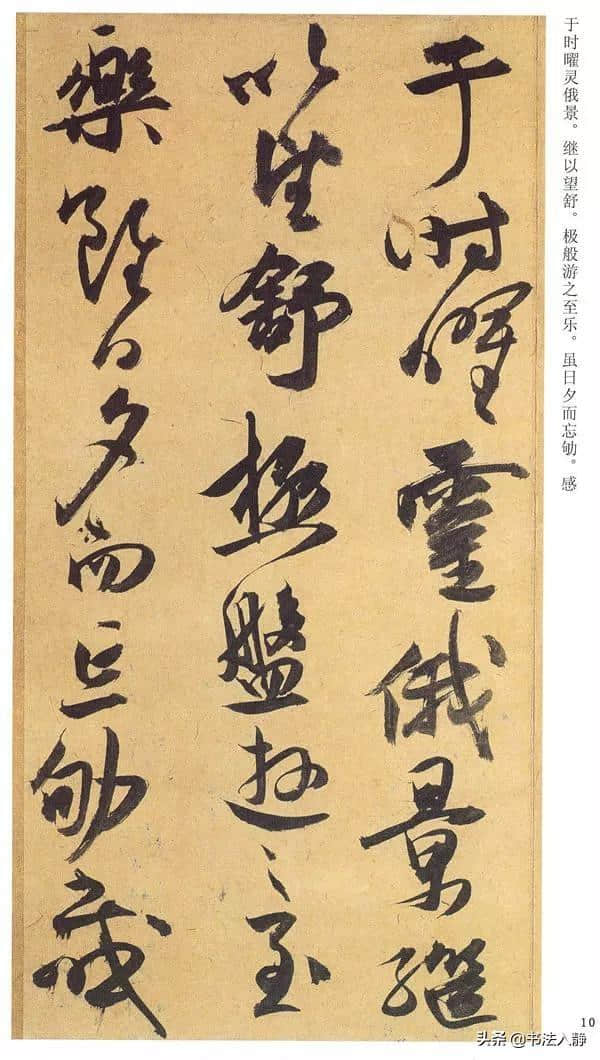 于时曜灵俄景。继以望舒。极般游之至乐。虽日夕而忘劬。感
于时曜靈俄景繼
以望舒極盤遊之至
樂雖日夕而忘劬感
10
头条@书法入静